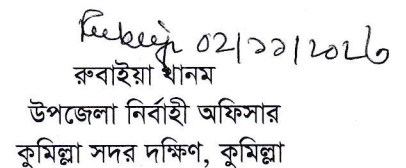 রুবাইয়া খানম
উপজেলা নির্বাহী অফিসার
কুমিল্লা সদর দক্ষিণ, কুমিল্লা